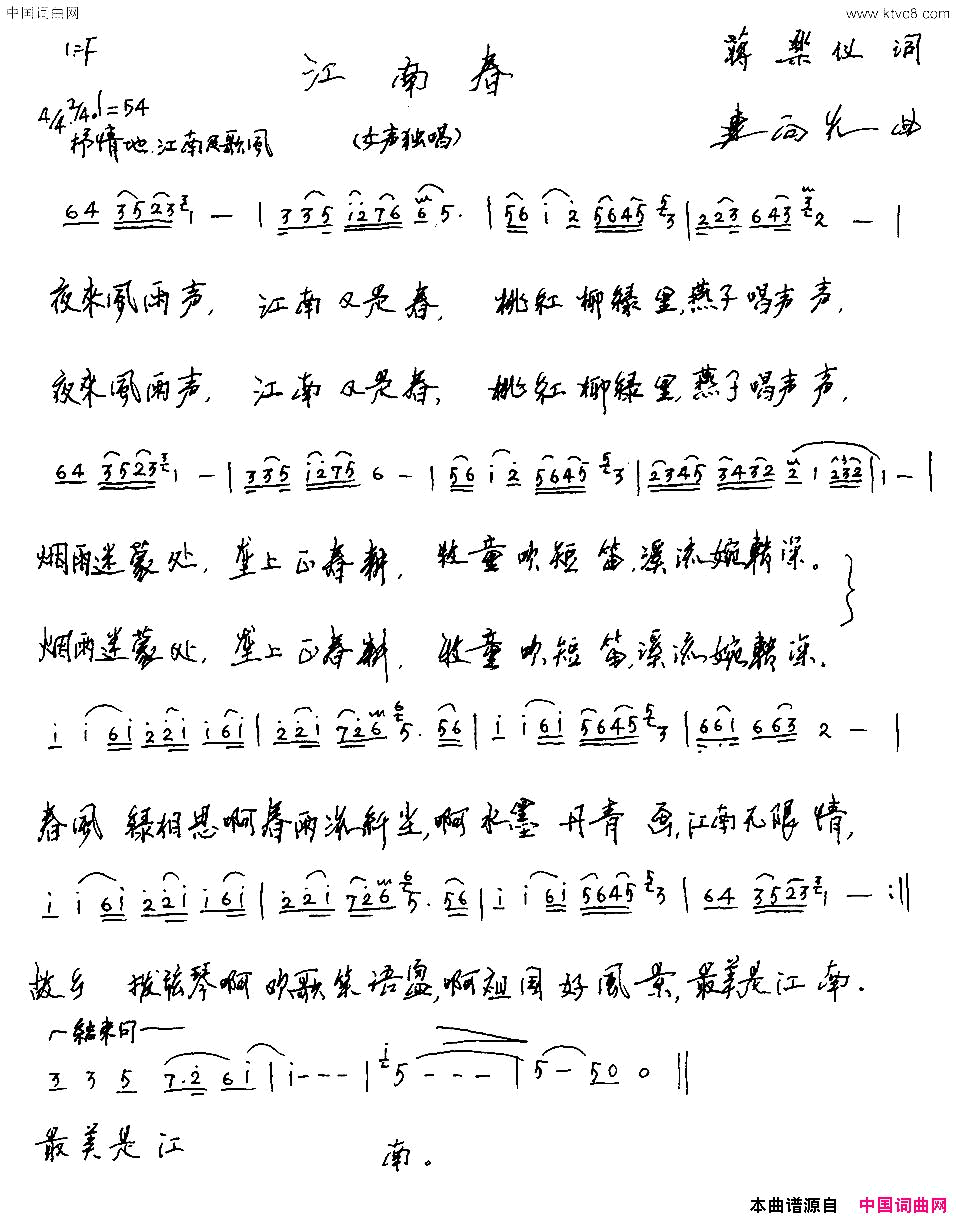 中国词曲网 www.ktvc8.com
1=F
江南春
蒋樂仪 词
4/4 2/4 ♩=54
抒情地.江南民歌風
(女声独唱)
曲
64 3523 1 — | 335 1276 6 5. | 56 1 2 5645 3 | 223 643 2 — |
夜來風雨声, 江南又是春, 桃红柳綠里,燕子唱声声,
夜來風雨声, 江南又是春, 桃红柳綠里,燕子唱声声,
64 3523 1 — | 335 1275 6 — | 56 1 2 5645 3 | 2345 3432 2 1 232 | 1 — |
烟雨迷蒙处, 垄上正春耕, 牧童吹短笛,溪流婉轉深。
烟雨迷蒙处, 垄上正春耕, 牧童吹短笛,溪流婉轉深.
1 1 61 221 161 | 221 726 5. 56 | 1 1 61 5645 3 | 661 663 2 — |
春風 綠相思啊春雨洗纤尘,啊水墨丹青画,江南无限情,
1 1 61 221 161 | 221 726 5. 56 | 1 1 61 5645 3 | 64 3523 1 — :||
故乡 拨弦琴啊欢歌笑语盈,啊祖国好風景,最美是江南.
结束句
3 3 5 7.2 6 1 | 1 - - - | 5 - - - | 5 — 50 0 ||
最美是江 南。
本曲谱源自 中国词曲网